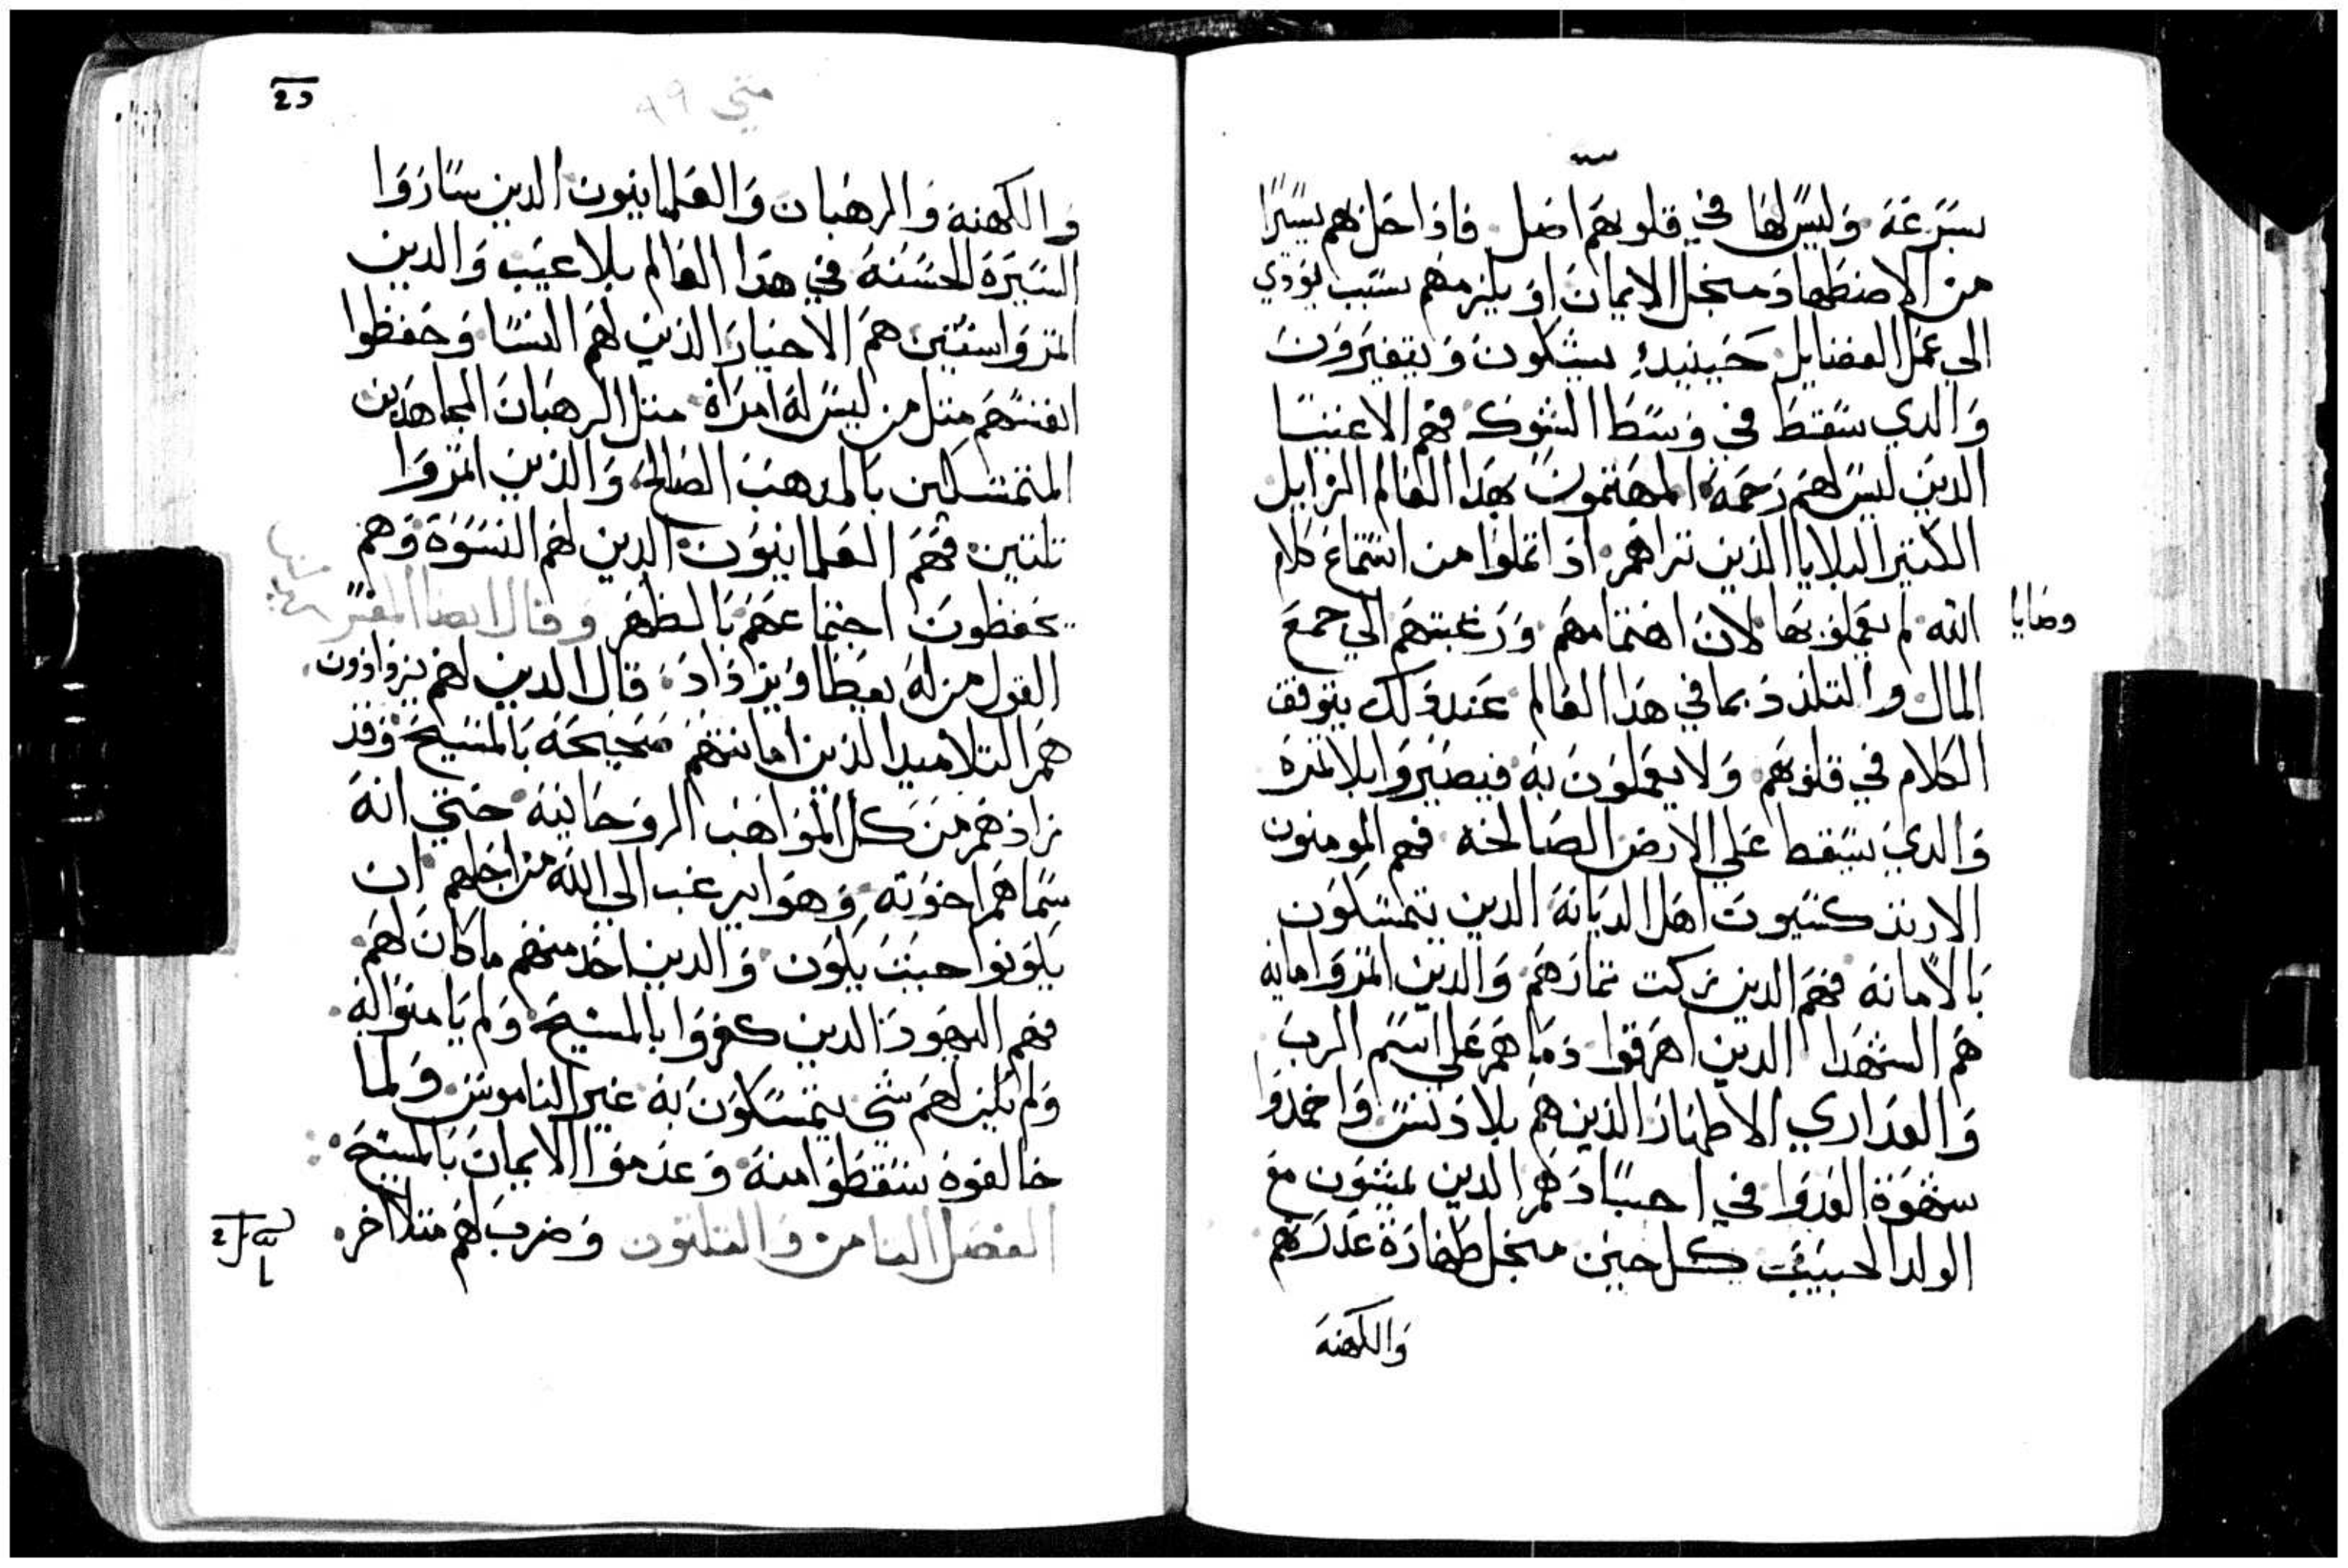 بسرعة وليس لها في قلوبهم اصل فاذا حل بهم يسيرا
من الاضطهاد منجل الايمان او يلزمهم بسبب يودي
الى عمل الفضايل حينيدٍ يشكون ويتغيرون
والدي سقط في وسط الشوك فهم الاغنيا
الدين ليس لهم رحمه المهتمون بهدا العالم الزايل
الكتير البلايا الذين تراهم اذا تملوا من استماع كلام
الله لم يعملو بها لان اهتمامهم ورغبتهم الي جمع
وصايا
المال والتلذذ بما في هذا العالم عند ذلك يتوقف
الكلام في قلوبهم ولا يعملون به فيصيروا بلا تمره
والدي يسقط علي الارض الصالحة فهم المومنون
الارتدكسيون اهل الديانة الدين يتمسكون
بالامانة فهم الدين تزكت تمارهم والدين اتمروا مايه
هم الشهدا الدين اهرقوا دماهم علي اسم الرب
والعداري الاطهار الذين هم بلا دنس واخمدوا
شهوة العدوا في اجسادهم الدين يمشون مع
الولد الحبيب كل حين منجل طهارة عدرتهم
والكهنة
متي ٩٩
والكهنة والرهبان والعلمانيون الدين ساروا
السيرة الحسنة في هدا العالم بلا عيب والدين
اتمروا ستين هم الاخيار الذين لهم النسا وحفظوا
انفسهم متل من ليس له امراة متل الرهبان المجاهدين
المتمسكين بالمدهب الصالح والذين اتمروا
تلتين فهم العلمانيون الدين لهم النسوة وهم
يحفظون اجتماعهم بالطهر وقال ايضا المفسر
القول من له يعطا ويزداد قال الدين لهم يزدادون
هم التلاميد الذين امانتهم صحيحة بالمسيح وقد
زادهم من كل المواهب الروحانية حتي انه
سماهم اخوته وهوا يرغب الي الله من اجلهم ان
يكونوا حيت يكون والدين اخد منهم ما كان لهم
فهم اليهود الدين كفروا بالمسيح ولم يامنوا به
ولم يكن لهم شي يتمسكون به غير الناموس ولما
خالفوه سقطوا منه وعدموا الايمان بالمسيح
الفصل التامن والتلتون وضرب لهم متلا اخر